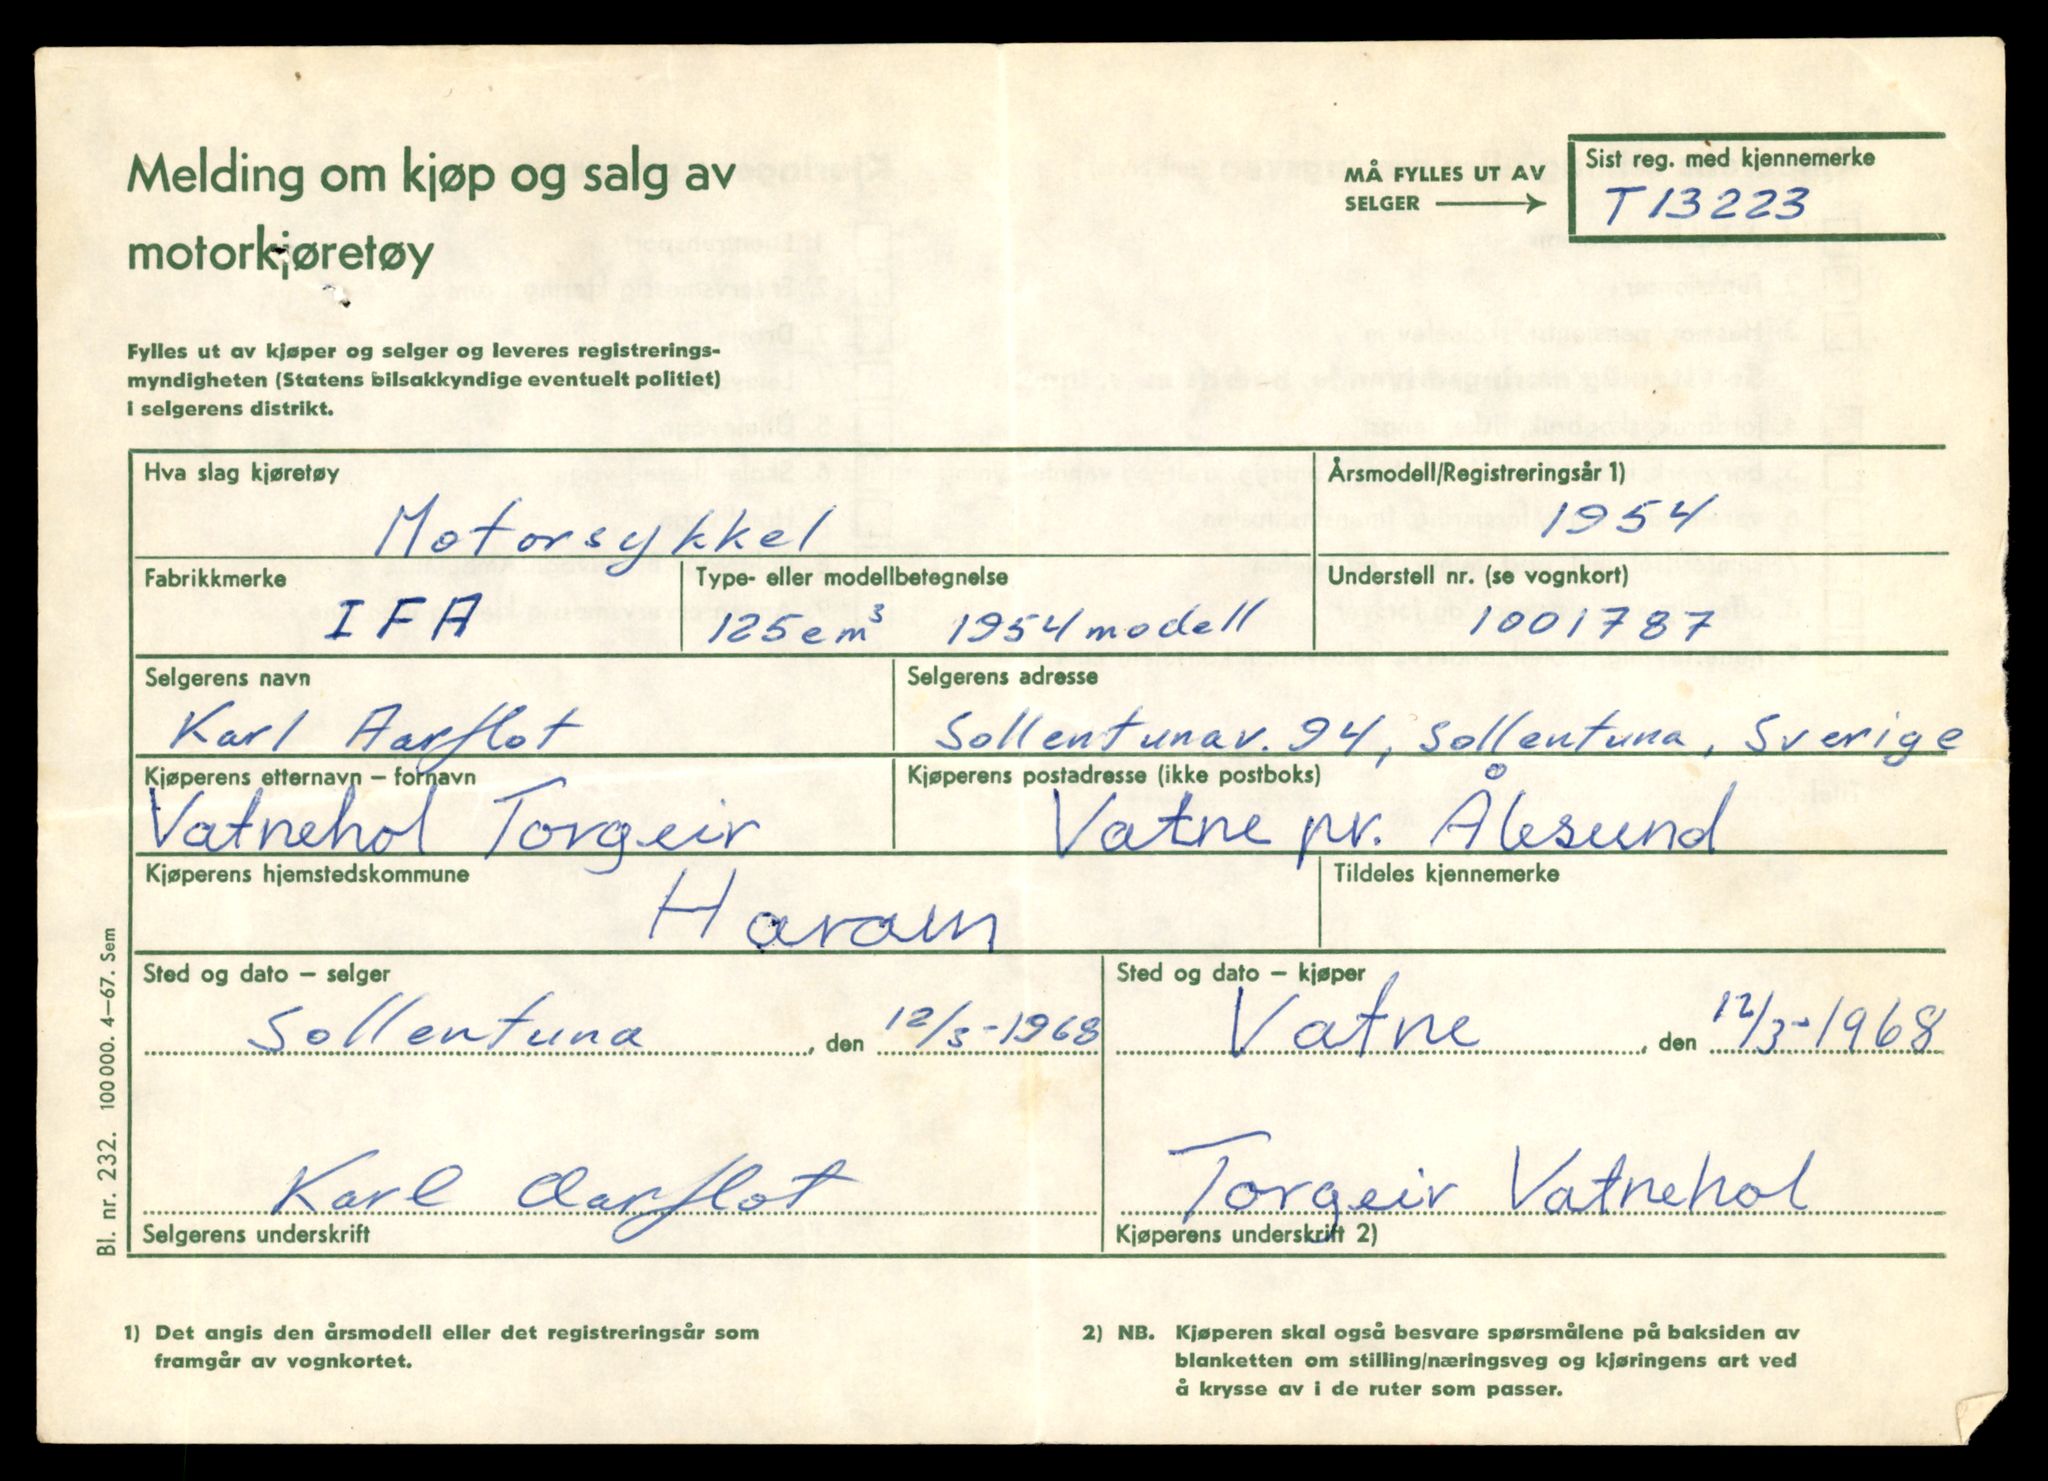 Melding om kjøp og salg av
motorkjøretøy
MÅ FYLLES UT AV
SELGER
Sist reg. med kjennemerke
T 13223
Fylles ut av kjøper og selger og leveres registrerings-
myndigheten (Statens bilsakkyndige eventuelt politiet)
i selgerens distrikt.
Hva slag kjøretøy
Motorsykkel
Årsmodell/Registreringsår 1)
1954
Fabrikkmerke
IFA
Type- eller modellbetegnelse
125 cm³ 1954 modell
Understell nr. (se vognkort)
1001787
Selgerens navn
Karl Aarflot
Selgerens adresse
Sollentunav. 94, Sollentuna, Sverige
Kjøperens etternavn – fornavn
Vatnehol Torgeir
Kjøperens postadresse (ikke postboks)
Vatne pr. Ålesund
Kjøperens hjemstedskommune
Haram
Tildeles kjennemerke
Sted og dato – selger
Sollentuna, den 12/3-1968
Sted og dato – kjøper
Vatne, den 12/3-1968
Karl Aarflot
Selgerens underskrift
Torgeir Vatnehol
Kjøperens underskrift 2)
Bl. nr. 232. 100 000. 4–67. Sem
1) Det angis den årsmodell eller det registreringsår som
framgår av vognkortet.
2) NB. Kjøperen skal også besvare spørsmålene på baksiden av
blanketten om stilling/næringsveg og kjøringens art ved
å krysse av i de ruter som passer.